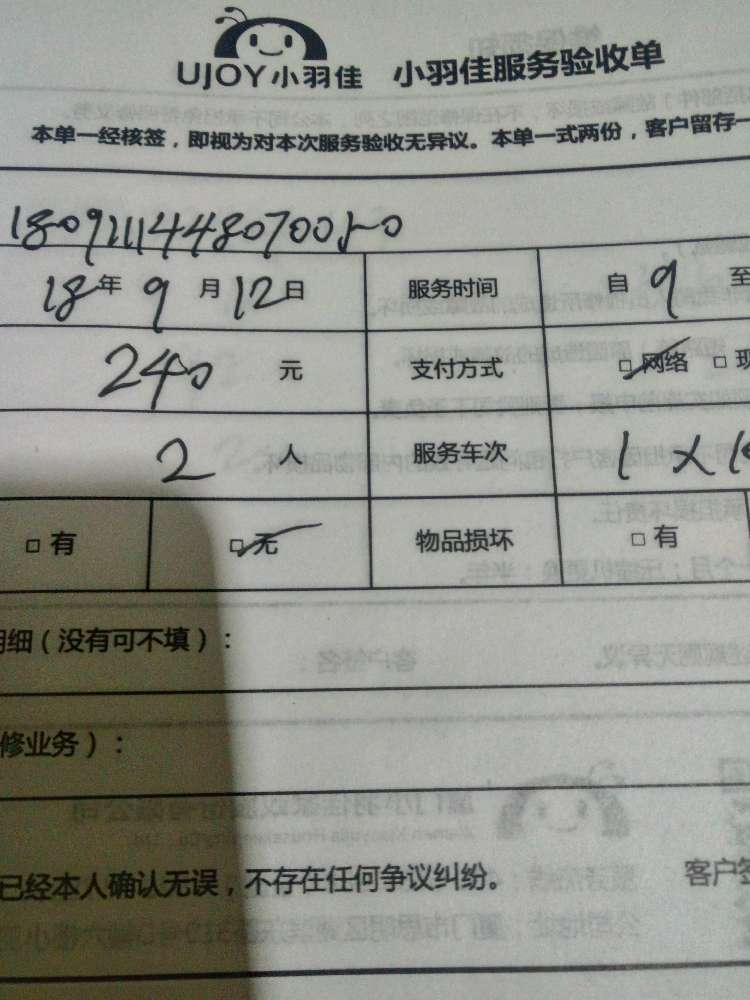 UJOY小羽佳 小羽佳服务验收单
本单一经核签，即视为对本次服务验收无异议。本单一式两份，客户留存一
1809111448070050
18年9月12日 服务时间 自9至
240元 支付方式 □网络 □现
2人 服务车次 1
□有 □无 物品损坏 □有
明细（没有可不填）：
修业务）：
已经本人确认无误，不存在任何争议纠纷。 客户签